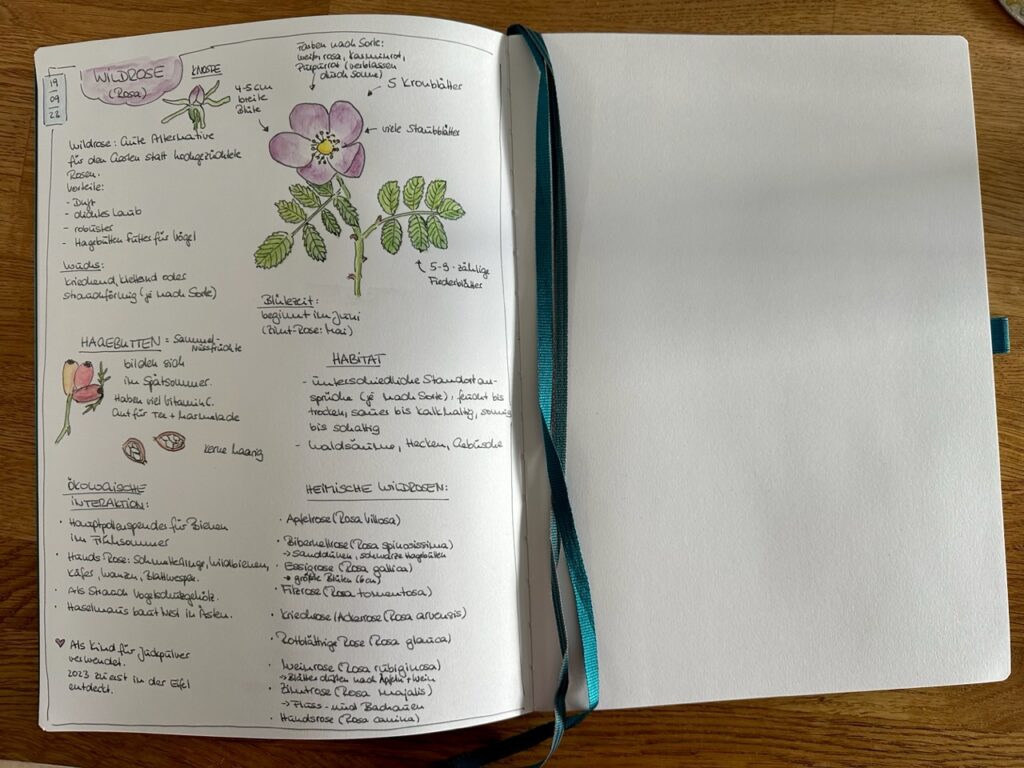 19
09
23
WILDROSE
(Rosa)
KNOSPE
4-5 cm
breite
Blüte
Farben nach Sorte:
weiß, rosa, karminrot,
Purpurrot (verblassen
durch Sonne)
5 Kronblätter
viele Staubblätter
5-9-zählige
Fiederblätter
Wildrose: Gute Alternative
für den Garten statt hochgezüchtete
Rosen.
Vorteile:
- Duft
- dichtes Laub
- robuster
- Hagebutten Futter für Vögel
Wuchs:
kriechend, kletternd oder
strauchförmig (je nach Sorte)
Blütezeit:
beginnt im Juni
(Zimt-Rose: Mai)
HAGEBUTTEN = Sammel-
nussfrüchte
bilden sich
im Spätsommer.
Haben viel Vitamin C.
Gut für Tee + Marmelade
Kerne haarig
HABITAT
- unterschiedliche Standortan-
sprüche (je nach Sorte), feucht bis
trocken, sauer bis kalkhaltig, sonnig
bis schattig
- Waldsäume, Hecken, Gebüsche
ÖKOLOGISCHE
INTERAKTION:
· Hauptpollenspender für Bienen
im Frühsommer
· Hunds Rose: Schmetterlinge, Wildbienen,
Käfer, Wanzen, Blattwespen.
· Als Strauch Vogelschutzgehölz.
· Haselmaus baut Nest in Ästen.
♥ Als Kind für Juckpulver
verwendet.
2023 zuerst in der Eifel
entdeckt.
HEIMISCHE WILDROSEN:
· Apfelrose (Rosa villosa)
· Bibernellrose (Rosa spinosissima)
→ Sanddünen, schwarze Hagebutten
· Essigrose (Rosa gallica)
→ größte Blüten (6cm)
· Filzrose (Rosa tomentosa)
· Kriechrose (Ackerrose (Rosa arvensis)
· Rotblättrige Rose (Rosa glauca)
· Weinrose (Rosa rubiginosa)
→ Blätter duften nach Äpfeln + Wein
· Zimtrose (Rosa majalis)
→ Fluss- und Bachauen
· Hundsrose (Rosa canina)